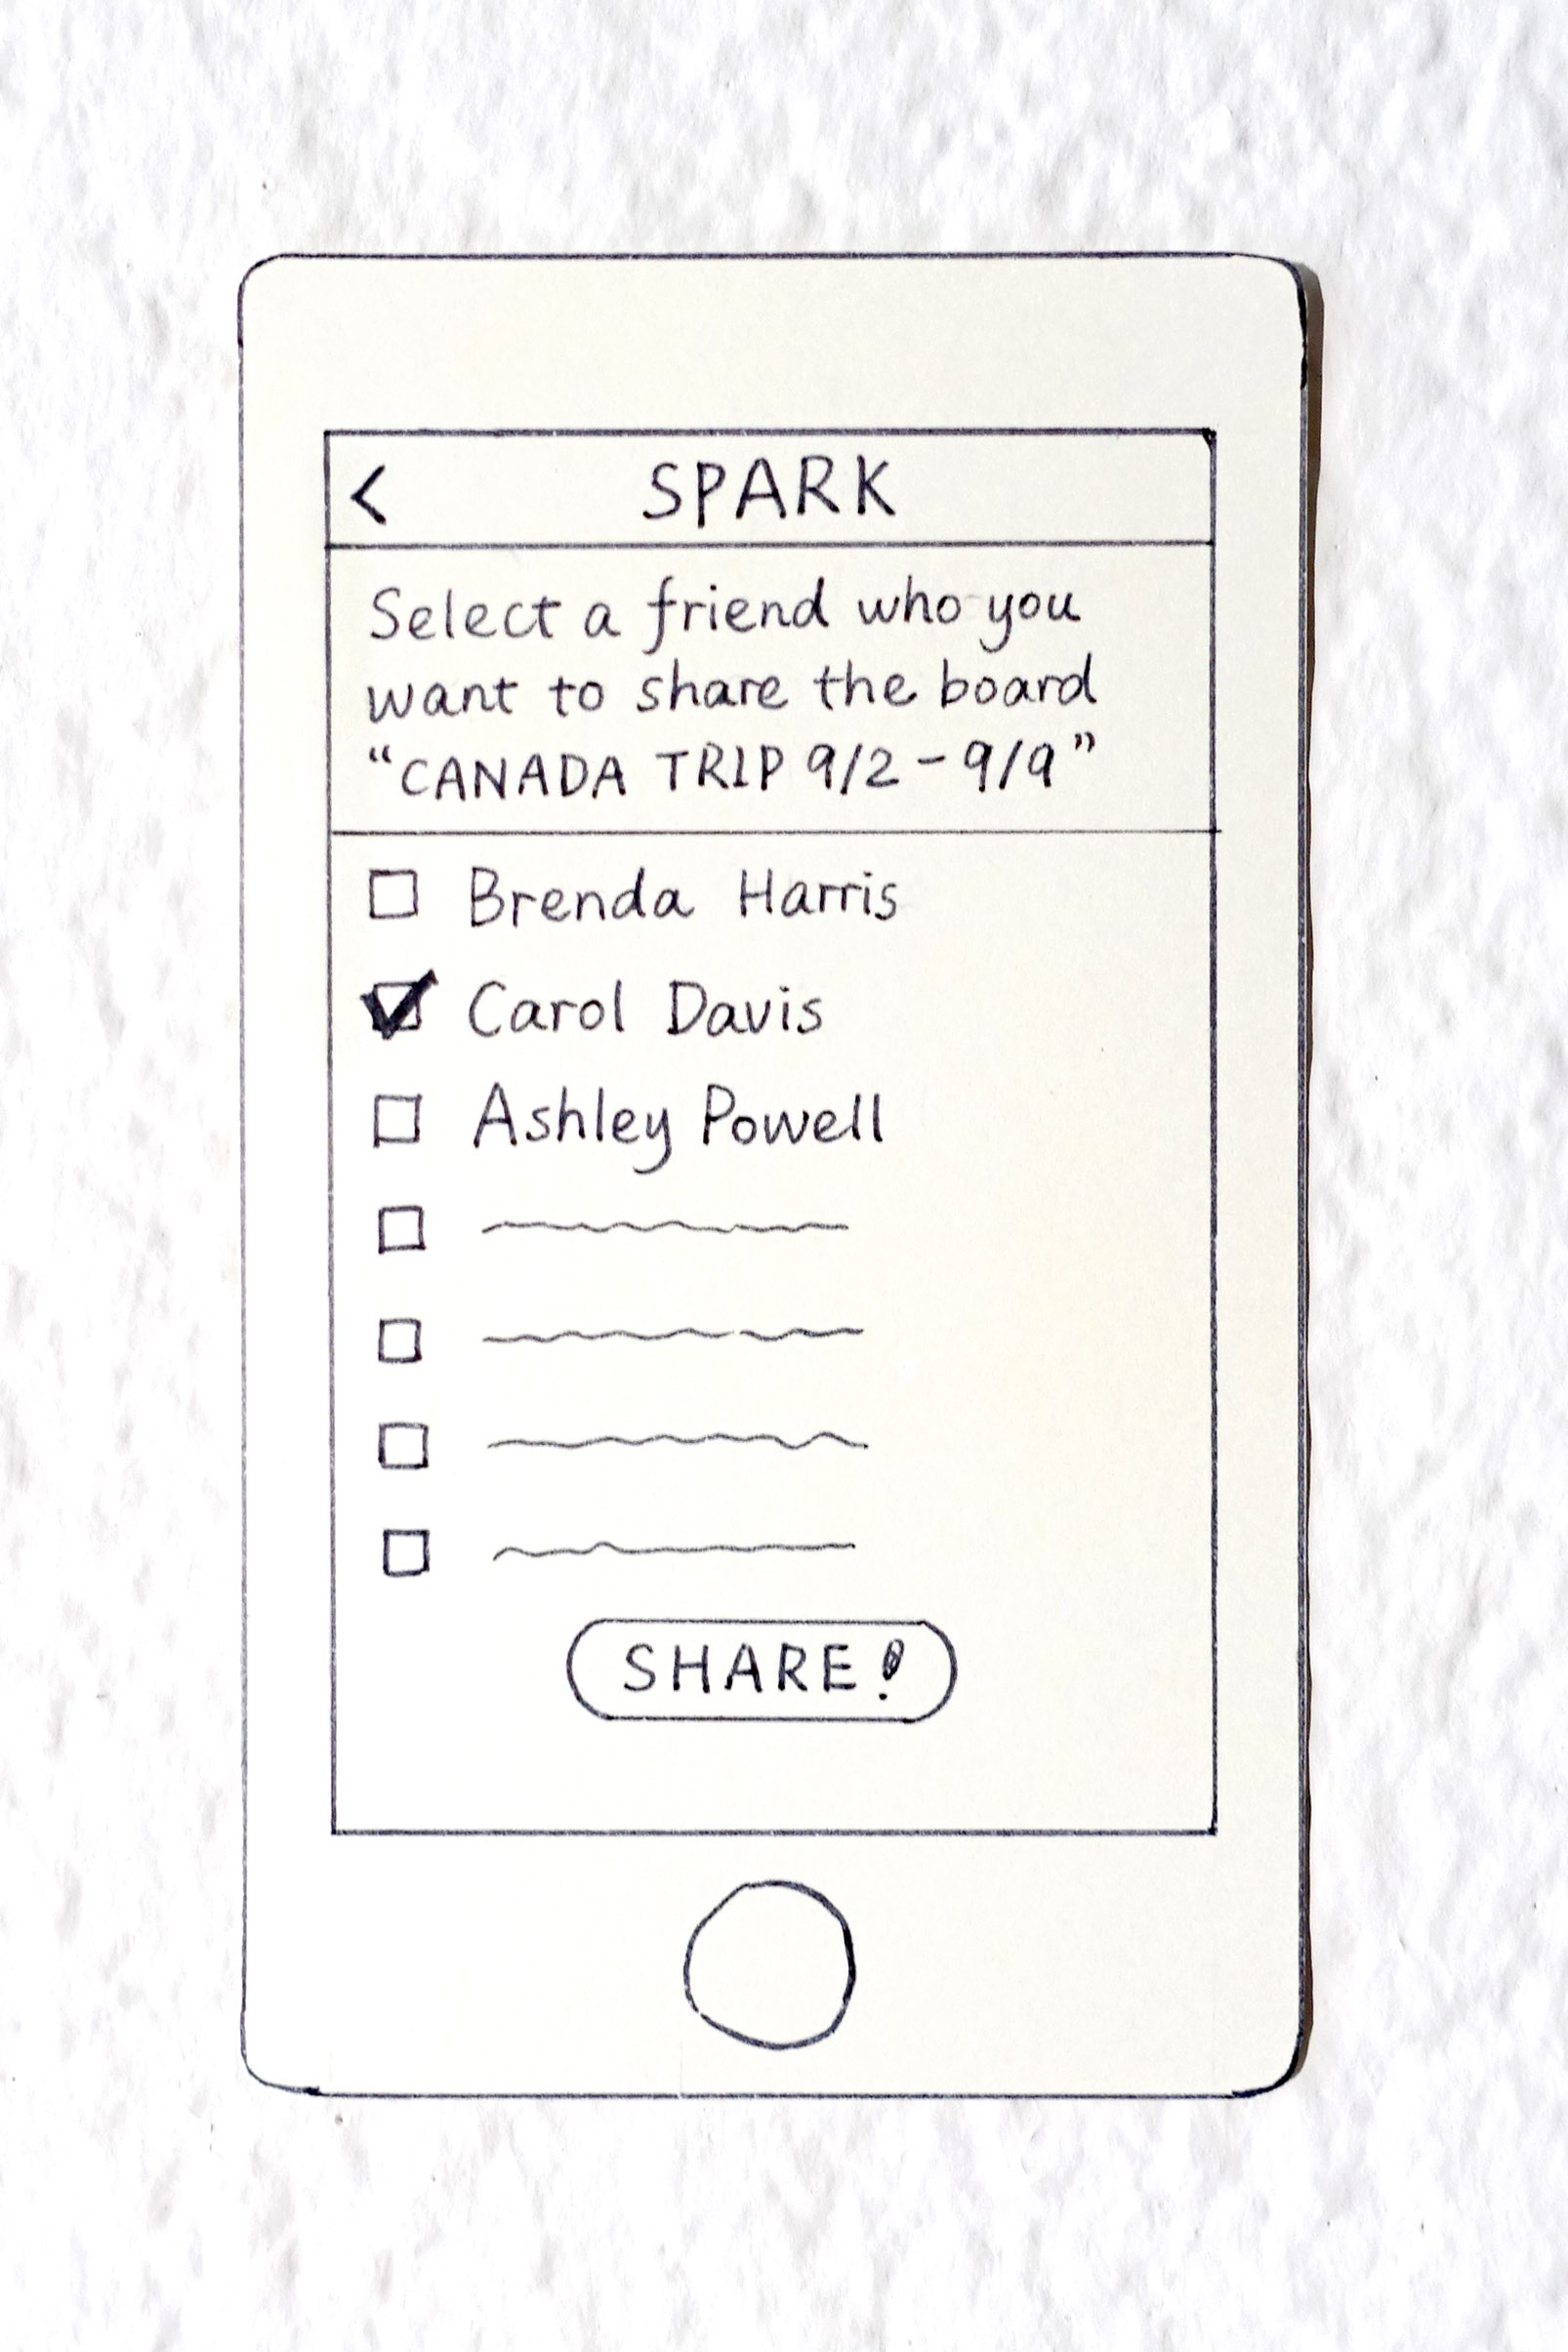 < SPARK
Select a friend who you
want to share the board
“CANADA TRIP 9/2 - 9/9”
Brenda Harris
Carol Davis
Ashley Powell
SHARE!